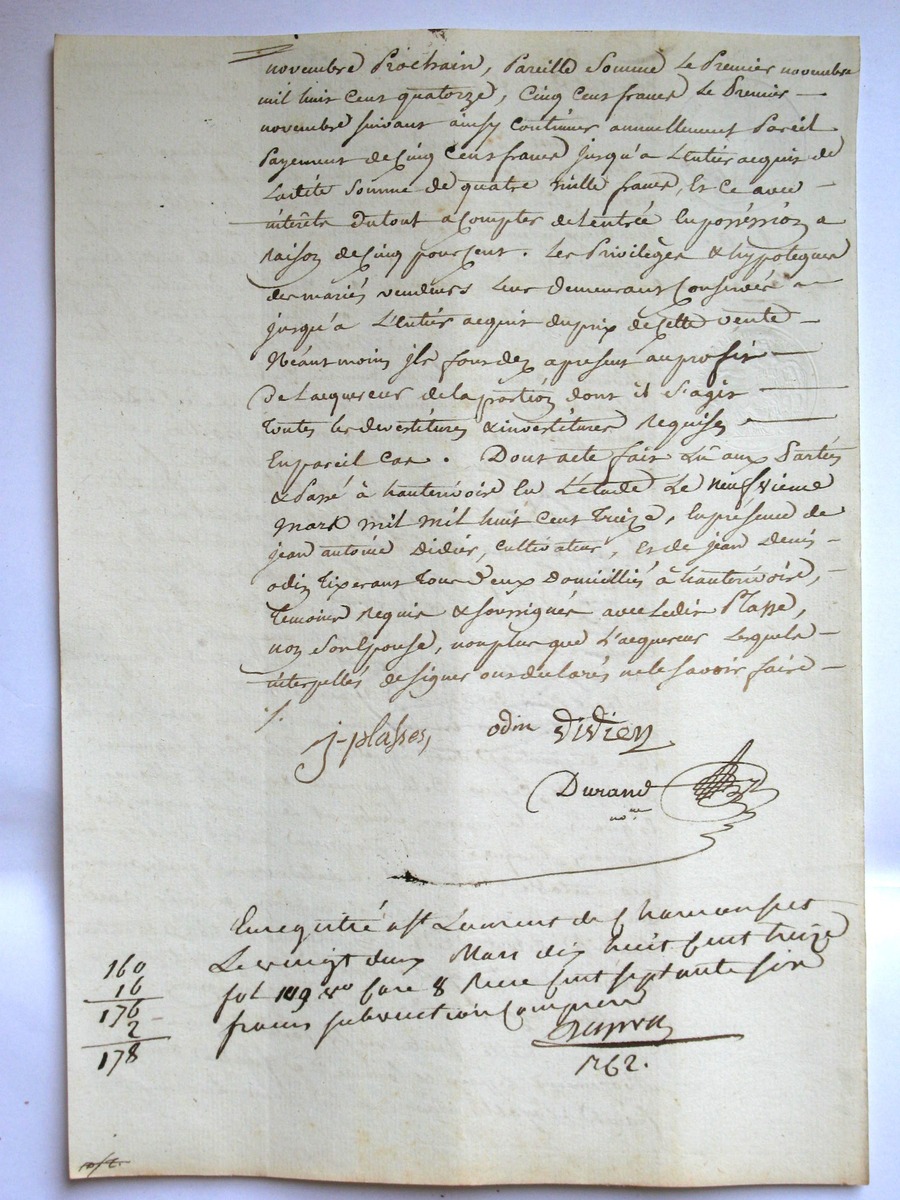 novembre Prochain, Pareille Somme le Premier novembre
mil huit cent quatorze, Cinq Cent francs le Premier
novembre suivant ainsy Continuer annuellement Pareil
Payement de Cinq Cent francs jusqu'a L'entier acquit de
Ladite Somme de quatre mille francs, Et Ce avec
interêts du tout a Compter de L'entrée En possession a
Raison de Cinq pour Cent. Les Privilèges & hypoteques
des mariés vendeurs leur demeurant Conservés
jusqu'a L'entier acquit du prix de Cette vente
Néantmoins ils font dez a present au profit
de L'acquereur de la portion dont il S'agit
toutes les devestitures & investitures Requises
En pareil Cas. Dont acte fait Lu aux Parties
& Passé à hauterivoire En L'étude Le neufvieme
mars mil mil huit Cent treize, En présence de
jean antoine Didier, Cultivateur, et de jean Denis
odin tixerant tous d'eux Domicilliés à hauterivoire,
temoins Requis & soussignés avec Ledit Plasse,
non Son Epouse, non plus que L'acquereur Lesquels
interpellés de signer ont déclarés ne le savoir faire
j-plasses, odin Didier
Durand
no.re
Enregistré a St Laurent de Chamousset
Le vingt deux Mars dix huit Cent treize
fol 119 vo Case 8 Reçu Cent septante six
francs subvention Comprise
160
16
176
2
178
1762.